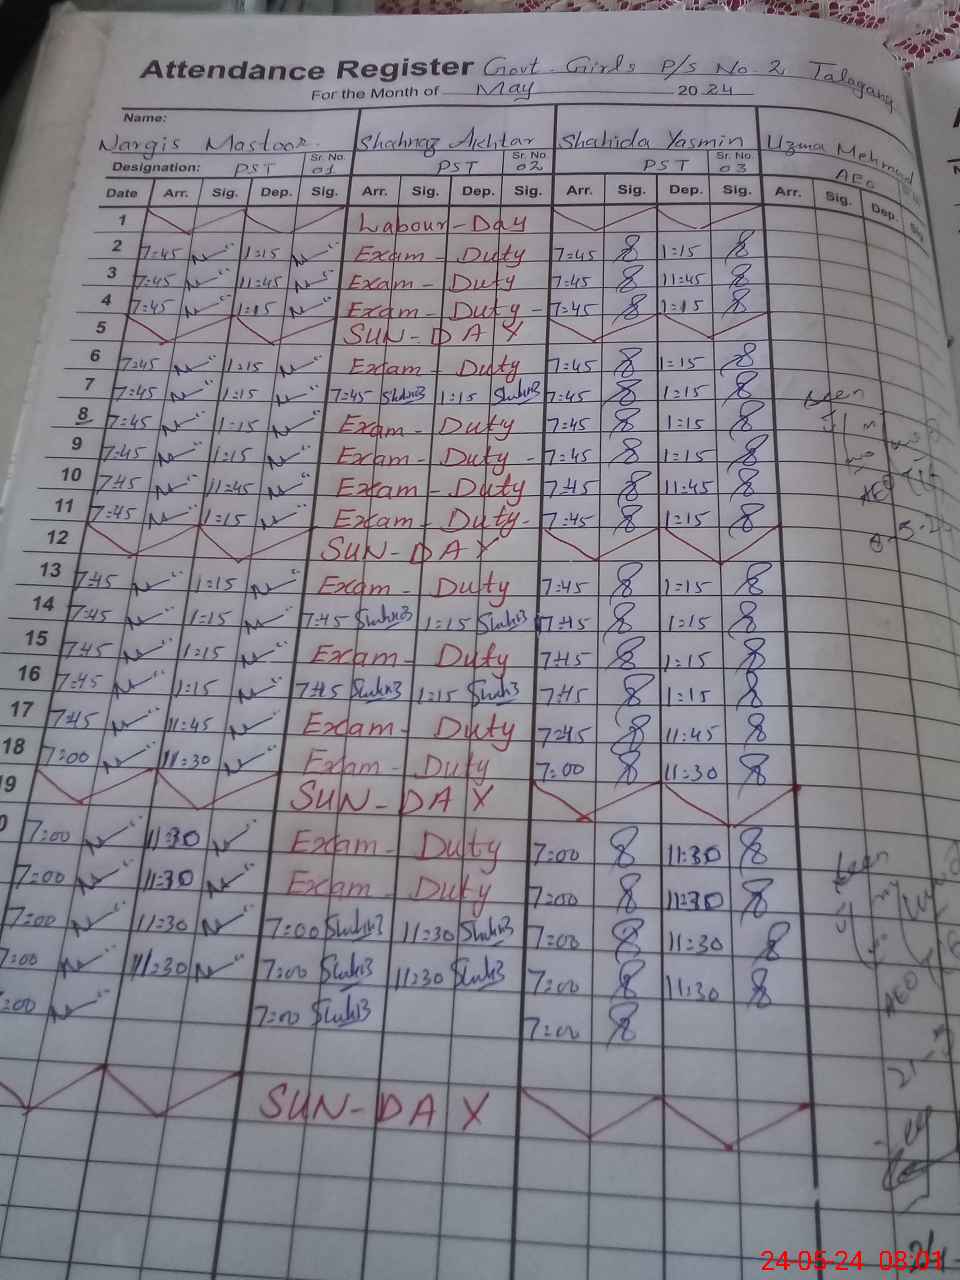 Attendance Register Govt. Girls P/S No. 2, Talagang
For the Month of May 2024
Name:
Nargis Mastoor Shahnaz Akhtar Shahida Yasmin Uzma Mehmood
Designation: PST Sr. No. 01 PST Sr. No. 02 PST Sr. No. 03 AEO
Date Arr. Sig. Dep. Sig. Arr. Sig. Dep. Sig. Arr. Sig. Dep. Sig. Arr. Sig. Dep. Sig.
1 Labour-Day
2 7:45 1:15 Exam - Duty 7:45 1:15
3 7:45 11:45 Exam - Duty 7:45 11:45
4 7:45 1:15 Exam - Duty - 7:45 1:15
5 SUN-DAY
6 7:45 1:15 Exam - Duty 7:45 1:15
7 7:45 1:15 7:45 1:15 7:45 1:15
8 7:45 1:15 Exam - Duty 7:45 1:15
9 7:45 1:15 Exam - Duty - 7:45 1:15
10 7:45 11:45 Exam - Duty 7:45 11:45
11 7:45 1:15 Exam - Duty - 7:45 1:15
12 SUN-DAY
13 7:45 1:15 Exam - Duty 7:45 1:15
14 7:45 1:15 7:45 1:15 7:45 1:15
15 7:45 1:15 Exam - Duty 7:45 1:15
16 7:45 1:15 7:45 1:15 7:45 1:15
17 7:45 11:45 Exam - Duty 7:45 11:45
18 7:00 11:30 Exam - Duty 7:00 11:30
9 SUN-DAY
0 7:00 11:30 Exam - Duty 7:00 11:30
7:00 11:30 Exam - Duty 7:00 11:30
7:00 11:30 7:00 11:30 7:00 11:30
7:00 11:30 7:00 11:30 7:00 11:30
:00 7:00 7:00
SUN-DAY
AEO
AEO
24-05-24 08:01